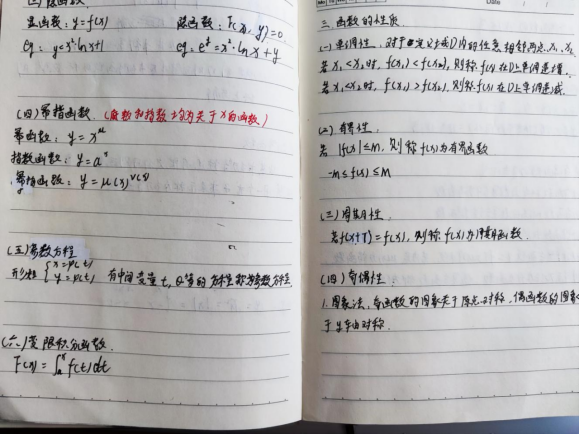 (三)隐函数
显函数：y=f(x) 隐函数：F(x, y)=0
eg: y=x²lnx+1 eg: eˣ=x²·lnx+y
(四)幂指函数. (底数和指数均为关于x的函数.)
幂函数：y=x^μ
指数函数：y=aˣ
幂指函数：y=μ(x)^v(x)
(五)参数方程
形如 {x=φ(t) 有中间变量t, θ等的方程称为参数方程
y=μ(t)
(六)变限积分函数.
F(x)=∫ₐˣ f(t)dt
三. 函数的性质
(一)单调性. 对于定义域D内的任意相异两点 x₁, x₂
若 x₁<x₂时, f(x₁)<f(x₂), 则称f(x)在D上单调递增.
若 x₁<x₂时, f(x₁)>f(x₂). 则称f(x)在D上单调递减.
(二)有界性.
若 |f(x)|≤M, 则称f(x)为有界函数
-M≤f(x)≤M
(三)周期性.
若f(x+T)=f(x), 则称f(x)为周期函数.
(四)奇偶性.
1.图象法, 奇函数的图象关于原点对称, 偶函数的图象
于y轴对称.